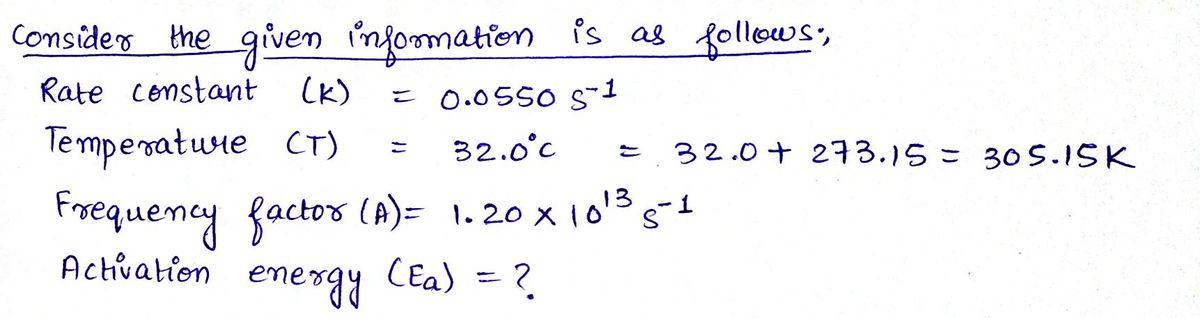 Consider the given information is as follows;
Rate constant (k) = 0.0550 s⁻¹
Temperature (T) = 32.0°C = 32.0 + 273.15 = 305.15K
Frequency factor (A)= 1.20 × 10¹³ s⁻¹
Activation energy (Ea) = ?